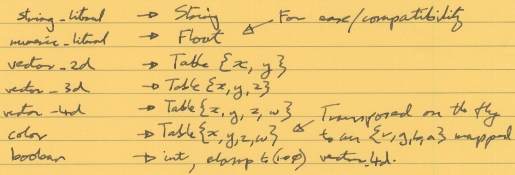 string_literal → String
For ease/compatibility
numeric_literal → Float
vector_2d → Table {x, y}
vector_3d → Table {x, y, z}
vector_4d → Table {x, y, z, w}
Transposed on the fly
color → Table {x, y, z, w}
to an {r, g, b, a} mapped
boolean → int, clamp to (1 or 0)
vector_4d.